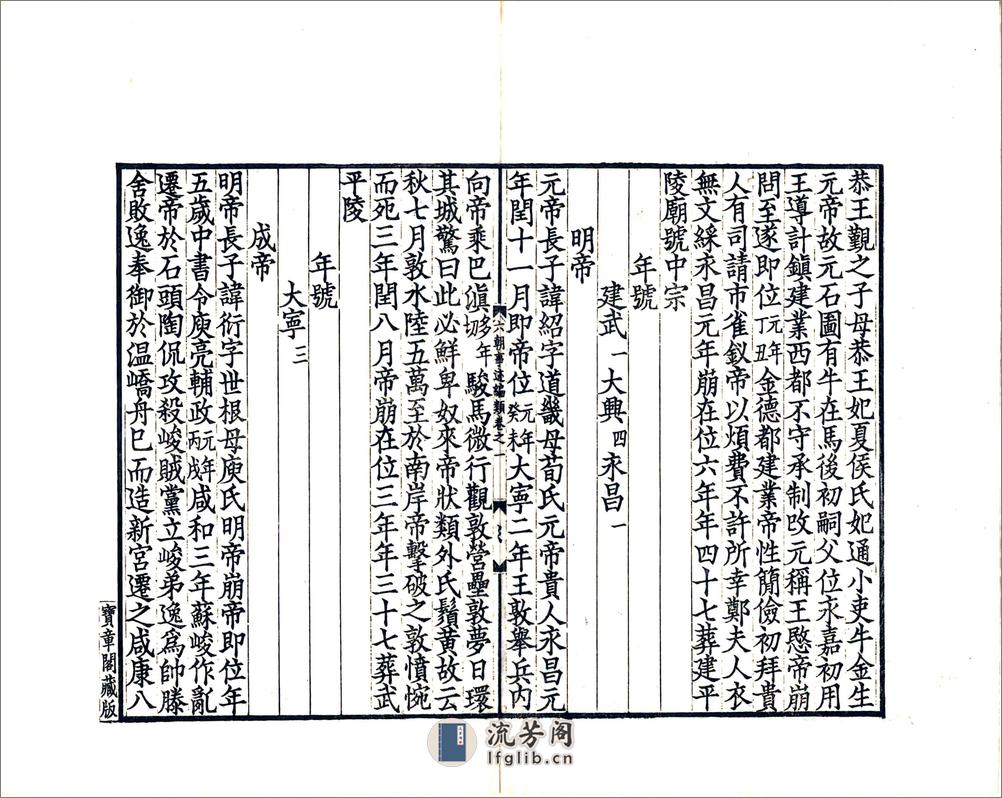 恭王覲之子母恭王妃夏侯氏妃通小吏牛金生
元帝故元石圖有牛在馬後初嗣父位永嘉初用
王導計鎮建業西都不守承制改元稱王愍帝崩
問至遂即位元年丁丑金德都建業帝性簡儉初拜貴
人有司請市雀釵帝以煩費不許所幸鄭夫人衣
無文綵永昌元年崩在位六年年四十七葬建平
陵廟號中宗
年號
建武一大興四永昌一
明帝
元帝長子諱紹字道畿母荀氏元帝貴人永昌元
年閏十一月即帝位元年癸未大寧二年王敦舉兵內
六朝事迹編類卷之一
向帝乘巴滇駿馬微行觀敦營壘敦夢日環
其城驚曰此必鮮卑奴來帝狀類外氏鬚黃故云
秋七月敦水陸五萬至於南岸帝擊破之敦憤惋
而死三年閏八月帝崩在位三年年三十七葬武
平陵
年號
大寧三
成帝
明帝長子諱衍字世根母庾氏明帝崩帝即位年
五歲中書令庾亮輔政元年丙戌咸和三年蘇峻作亂
遷帝於石頭陶侃攻殺峻賊黨立峻弟逸為帥滕
含敗逸奉御於温嶠舟巳而造新宮遷之咸康八
寶章閣藏版
流芳阁
lfglib.cn